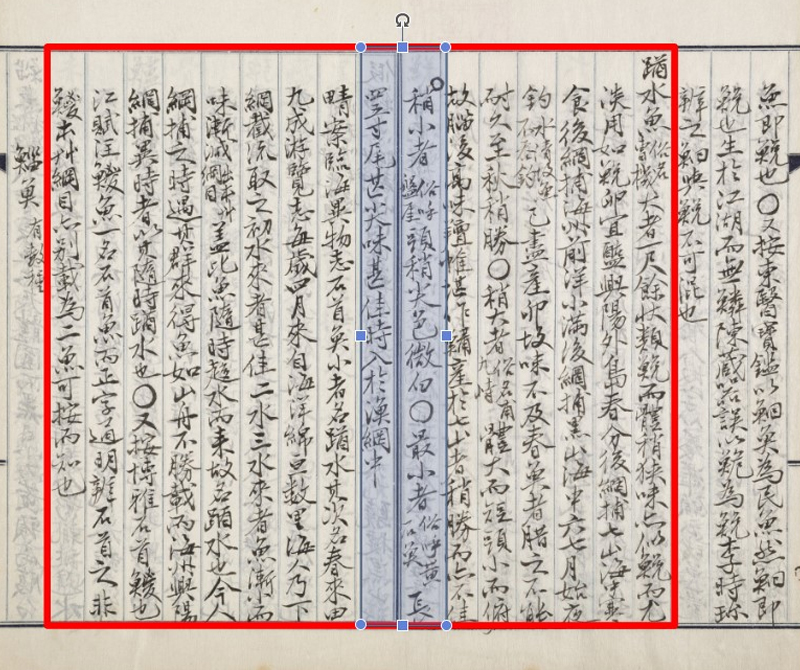 無即鮸也○又按東醫寶鑑以鮰魚爲民魚然鮰即
鮸也生於江湖而無鱗陳藏器誤以鮠爲鮸李時珍
辨之鮰與鮸不可混也
踏水魚俗名曹機大者一尺餘狀類鮸而體稍狹味亦似鮸而尤
淡用如鮸卵宜醢興陽外島春分後網捕七山海中寒
食後網捕海州前洋小滿後網捕黑山海中六七月始夜
釣水清故不上釣己盡產卵故味不及春魚者腊之不能
耐久至秋稍勝○稍大者俗名甫九峙體大而短頭小而俯
故腦後高味羶惟堪作鱐產於七山者稍勝而亦不佳
稍小者俗呼盤厓頭稍尖色微白○最小者俗呼黃石魚長
四五寸尾甚尖味甚佳時入於漁網中
晴案臨海異物志石首魚小者名踏水其次名春來田
九成游覽志每歲四月來自海洋綿亘數里海人乃下
網截流取之初水來者甚佳二水三水來者魚漸小而
味漸減出本草綱目蓋此魚隨時趨水而來故名踏水也今人
網捕之時遇其群來得魚如山舟不勝載而海州興陽
網捕異時者以其隨時踏水也○又按博雅石首鯼也
江賦注鯼魚一名石首魚而正字通明辨石首之非
鯼本艸綱目亦別載爲二魚可按而知也
鯔魚 有數種